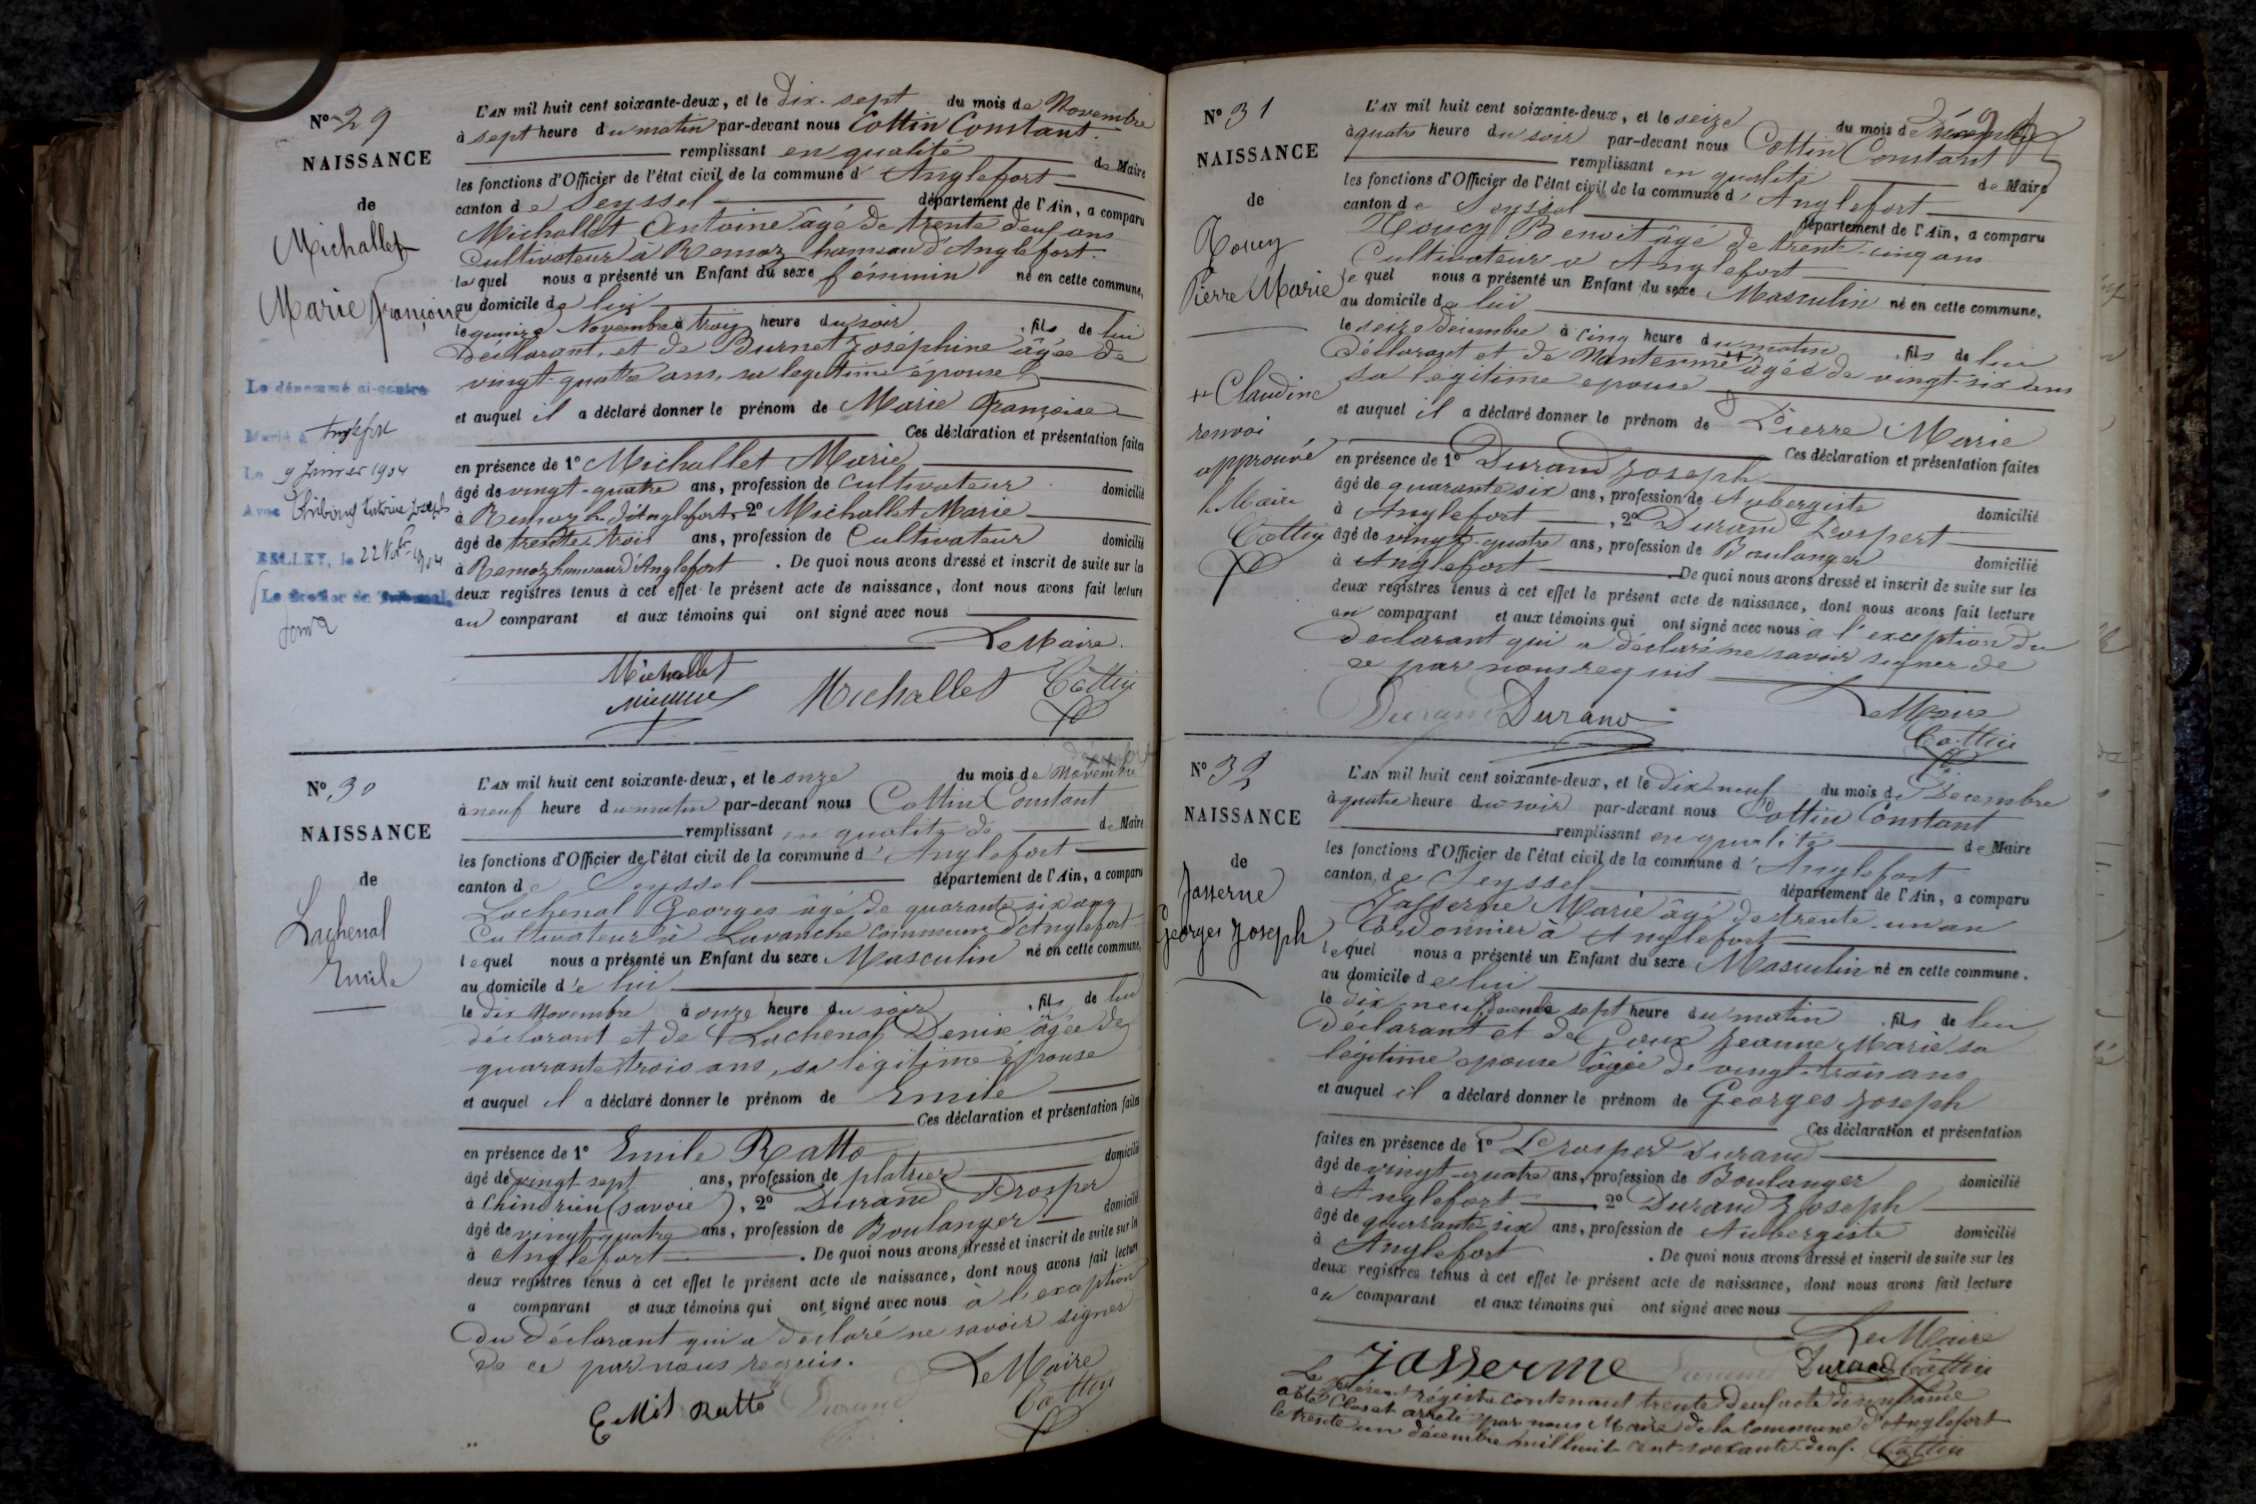 N° 29
NAISSANCE
de
Michallet
Marie Françoise
Le dénommé ci-contre
Marié à Anglefort
Le 9 Janvier 1904
Avec Antoine Joseph
BELLEY, le 22 1904
Le Greffier du Tribunal,
L'AN mil huit cent soixante-deux, et le dix-sept du mois de Novembre
à sept heure du matin par-devant nous Cottin Constant
remplissant en qualité de Maire
les fonctions d'Officier de l'état civil de la commune d'Anglefort
canton de Seyssel département de l'Ain, a comparu
Michallet Antoine âgé de trente deux ans
Cultivateur à Remoz hameau d'Anglefort.
lequel nous a présenté un Enfant du sexe féminin né en cette commune,
au domicile de lui
le quinze Novembre à trois heure du soir , fils de lui
Déclarant, et de Burnet Joséphine âgée de
vingt-quatre ans, sa legitime épouse
et auquel il a déclaré donner le prénom de Marie Françoise
Ces déclaration et présentation faites
en présence de 1° Michallet Marie
âgé de vingt-quatre ans, profession de Cultivateur domicilié
à Remoz h. d'Anglefort, 2° Michallet Marie
âgé de trentes trois ans, profession de Cultivateur domicilié
à Remoz hameau d'Anglefort . De quoi nous avons dressé et inscrit de suite sur la
deux registres tenus à cet effet le présent acte de naissance, dont nous avons fait lecture
au comparant et aux témoins qui ont signé avec nous
Le Maire.
Michallet Michallet Cottin
N° 30
NAISSANCE
de
Lachenal
Emile
L'AN mil huit cent soixante-deux, et le onze du mois de Novembre
à neuf heure du matin par-devant nous Cottin Constant
remplissant en qualité de de Maire
les fonctions d'Officier de l'état civil de la commune d'Anglefort
canton de Seyssel département de l'Ain, a comparu
Lachenal Georges âgé de quarante six ans
Cultivateur à Lavanche commune d'Anglefort
lequel nous a présenté un Enfant du sexe Masculin né en cette commune,
au domicile de lui
le dix Novembre à onze heure du soir , fils de lui
déclarant et de Lachenal Denise âgée de
quarante trois ans, sa légitime épouse
et auquel il a déclaré donner le prénom de Emile
Ces déclaration et présentation faites
en présence de 1° Emile Ratto
âgé de vingt sept ans, profession de platrier domicilié
à Chindrieu (Savoie), 2° Durand Prosper
âgé de vingt quatre ans, profession de Boulanger domicilié
à Anglefort . De quoi nous avons dressé et inscrit de suite sur la
deux registres tenus à cet effet le présent acte de naissance, dont nous avons fait lecture
a comparant et aux témoins qui ont signé avec nous à l'exception
du déclarant qui a déclaré ne savoir signer
de ce par nous requis.
Le Maire
Emile Ratto Durand Cottin
N° 31
NAISSANCE
de
Roucy
Pierre Marie
++ Claudine
renvoi
approuvé
le Maire
Cottin
L'AN mil huit cent soixante-deux, et le seize du mois de Décembre
à quatre heure du soir par-devant nous Cottin Constant
remplissant en qualité de Maire
les fonctions d'Officier de l'état civil de la commune d'Anglefort
canton de Seyssel département de l'Ain, a comparu
Roucy Benoit âgé de trente-cinq ans
Cultivateur à Anglefort
lequel nous a présenté un Enfant du sexe Masculin né en cette commune,
au domicile de lui
le seize décembre à cinq heure du matin , fils de lui
déclarant et de ++ âgée de vingt-six ans
sa legitime épouse
et auquel il a déclaré donner le prénom de Pierre Marie
Ces déclaration et présentation faites
en présence de 1° Durand Joseph
âgé de quarante six ans, profession de Aubergiste domicilié
à Anglefort , 2° Durand Prospert
âgé de vingt-quatre ans, profession de Boulanger domicilié
à Anglefort . De quoi nous avons dressé et inscrit de suite sur les
deux registres tenus à cet effet le présent acte de naissance, dont nous avons fait lecture
au comparant et aux témoins qui ont signé avec nous à l'exception du
déclarant qui a déclaré ne savoir signer de
ce par nous requis
Durand Durand
Le Maire
Cottin
N° 32
NAISSANCE
de
Jasserne
Georges Joseph
L'AN mil huit cent soixante-deux, et le dix neuf du mois de Décembre
à quatre heure du soir par-devant nous Cottin Constant
remplissant en qualité de Maire
les fonctions d'Officier de l'état civil de la commune d'Anglefort
canton de Seyssel département de l'Ain, a comparu
Jasserne Marie âgé de trente-un an
Cordonnier à Anglefort
lequel nous a présenté un Enfant du sexe Masculin né en cette commune.
au domicile de lui
le dix neuf décembre sept heure du matin , fils de lui
Déclarant et de Jeanne Marie sa
légitime épouse âgée de vingt-trois ans
et auquel il a déclaré donner le prénom de Georges Joseph
Ces déclaration et présentation
faites en présence de 1° Prosper Durand
âgé de vingt-quatre ans, profession de Boulanger domicilié
à Anglefort 2° Durand Joseph
âgé de quarante six ans, profession de Aubergiste domicilié
à Anglefort . De quoi nous avons dressé et inscrit de suite sur les
deux registres tenus à cet effet le présent acte de naissance, dont nous avons fait lecture
au comparant et aux témoins qui ont signé avec nous
Le Maire
Jasserme Durand Cottin
Le présent régistre contenant trente deux acte de naissance
a été Clos et arreté par nous Maire de la Commune d'Anglefort
le trente un décembre mil huit cent soixante deux. Cottin